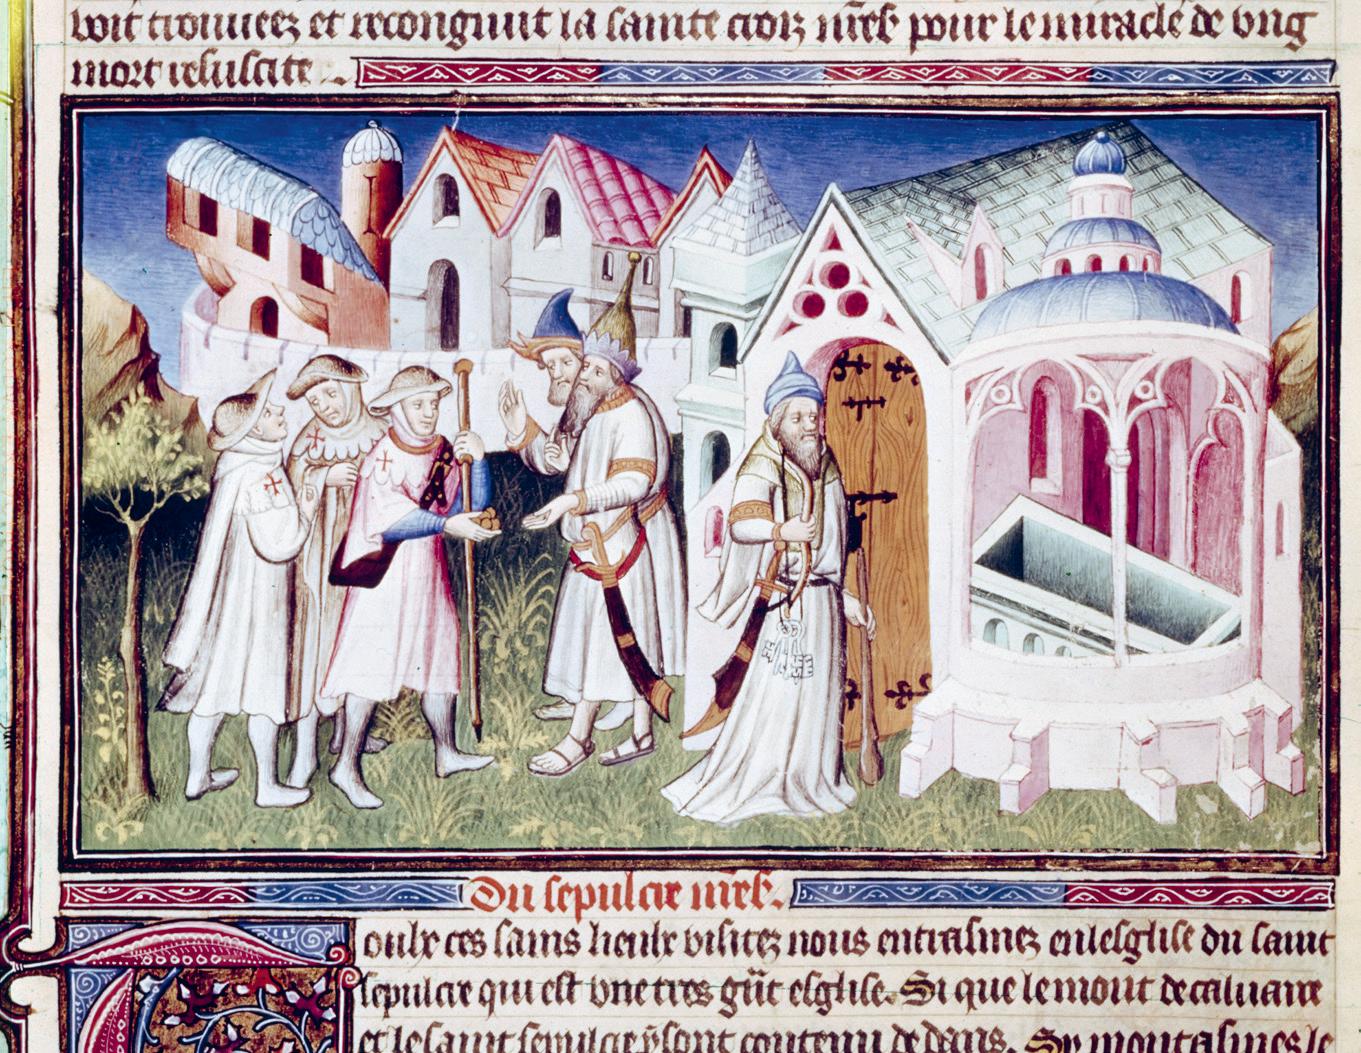 voit trouuees et recongnut la sainte croix nre s̄ pour le miracle de vng
mort resuscite.
Du sepulcre nre s̄.
Toulx ces sains lieulx visitez nous entrasmez en lesglise du saint
sepulcre qui est vne tres gñt esglise. Si que le mont de caluaire
et le saint sepulcre y sont contenu dedens. Sy montasmes le